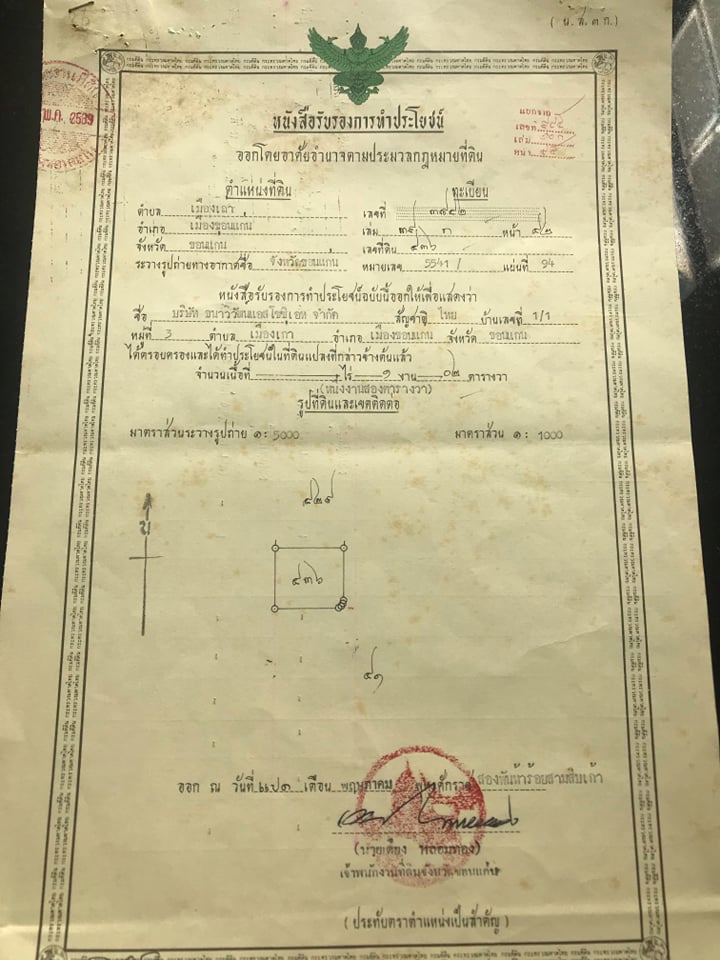 ( น.ส.๓ ก.)
พ.ค. 2539
หนังสือรับรองการทำประโยชน์
ออกโดยอาศัยอำนาจตามประมวลกฎหมายที่ดิน
แยกจาก
เลขที่
เล่ม
หน้า
ตำแหน่งที่ดิน ทะเบียน
ตำบล เมืองเก่า เลขที่ ๓๘๕๒
อำเภอ เมืองขอนแก่น เล่ม หน้า ๕๒
จังหวัด ขอนแก่น เลขที่ดิน ๔๓๖
ระวางรูปถ่ายทางอากาศชื่อ จังหวัดขอนแก่น หมายเลข 5541 / แผ่นที่ 94
หนังสือรับรองการทำประโยชน์ฉบับนี้ออกให้เพื่อแสดงว่า
ชื่อ บริษัท จำกัด สัญชาติ ไทย บ้านเลขที่ 1/1
หมู่ที่ 3 ตำบล เมืองเก่า อำเภอ เมืองขอนแก่น จังหวัด ขอนแก่น
ได้ครอบครองและได้ทำประโยชน์ในที่ดินแปลงที่กล่าวข้างต้นแล้ว
จำนวนเนื้อที่ - ไร่ ๑ งาน ๐๒ ตารางวา
(หนึ่งงานสองตารางวา)
รูปที่ดินและเขตติดต่อ
มาตราส่วนระวางรูปถ่าย ๑: 5000 มาตราส่วน ๑: 1000
๔๒๙
น
๔๓๖
๔๑
ออก ณ วันที่ เดือน พฤษภาคม สองพันห้าร้อยสามสิบเก้า
เจ้าพนักงานที่ดินจังหวัดขอนแก่น
( ประทับตราตำแหน่งเป็นสำคัญ )